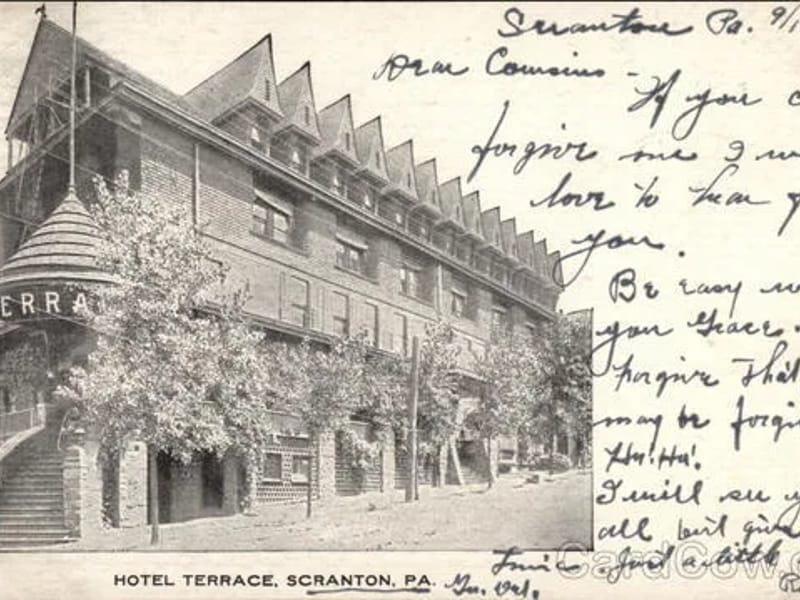 Scranton Pa. 9/1
Dear Cousins -
If you c
forgive me I w
love to hear
you.
Be easy
you Grace
forgive that
may be forgi
Ha! Ha!
I will see y
all but give
time. Just a little
ERRA
HOTEL TERRACE, SCRANTON, PA.
CardCow.co